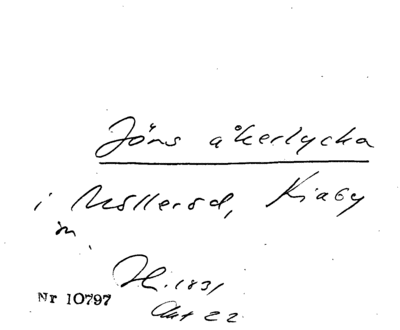 Jöns åkerlycka
i Mölleröd, Kiaby
sn.
H. 1831
Akt 22
Nr 10797